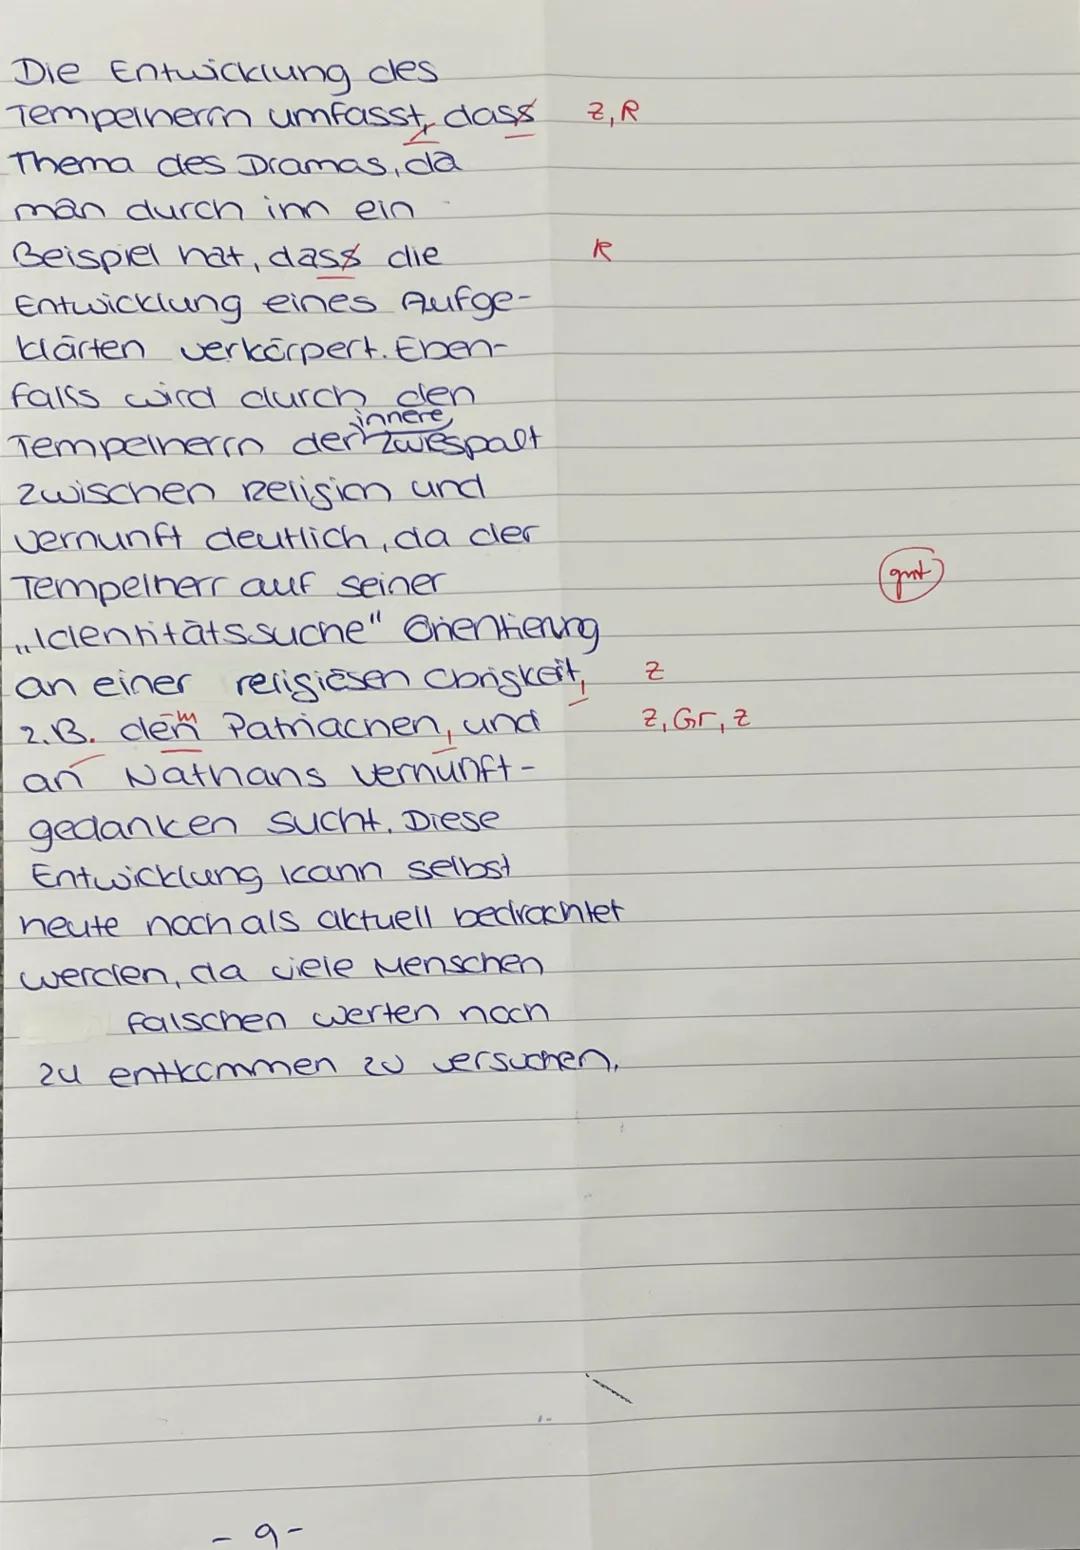 Die Entwicklung des
Tempelherrn umfasst, dass Z, R
Thema des Dramas, da
man durch ihn ein
Beispiel hat, dass die R
Entwicklung eines Aufge-
klärten verkörpert. Eben-
falls wird durch den
innere
Tempelherrn der Zwiespalt
zwischen Religion und
Vernunft deutlich, da der
Tempelherr auf seiner gut
„Identitätssuche" Orientierung
an einer religiösen Obrigkeit, Z
z.B. den m Patriachen, und Z, Gr, Z
an Nathans Vernunft-
gedanken sucht. Diese
Entwicklung kann selbst
heute noch als aktuell bedrachtet
werden, da viele Menschen
falschen Werten noch
zu entkommen zu versuchen.
- 9 -